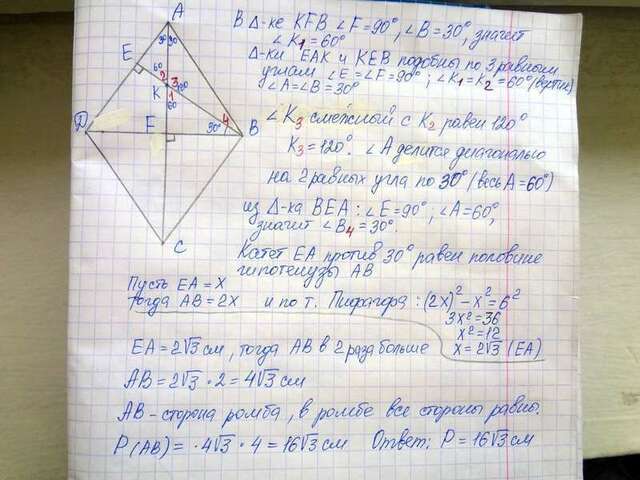 В Δ-ке KFB ∠F=90°, ∠B=30°, значит
∠K1=60°
Δ-ки EAK и KEB подобны по 3 равным
углам ∠E=∠F=90°; ∠K1=K2=60° (вертик)
∠A=∠B=30°
∠K3 смежный с K2 равен 120°
K3=120°. ∠A делится диагональю
на 2 равных угла по 30° (весь A=60°)
из Δ-ка BEA: ∠E=90°, ∠A=60°,
значит ∠B4=30°.
Катет EA против 30° равен половине
гипотенузы AB
Пусть EA=x
тогда AB=2x и по т. Пифагора: (2x)²-x²=6²
3x²=36
x²=12
x=2√3 (EA)
EA=2√3 см, тогда AB в 2 раза больше
AB=2√3·2=4√3 см
AB-сторона ромба, в ромбе все стороны равны.
P(AB)=·4√3·4=16√3 см Ответ: P=16√3 см
A
30 30
E
60
2
3
K
120
1
60
Д
E
30°
4
B
C